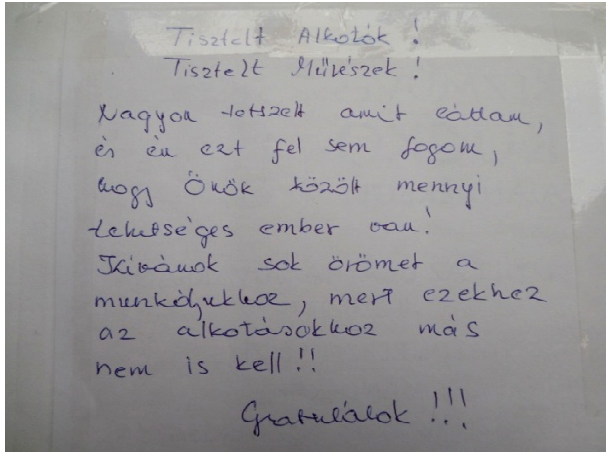 Tisztelt Alkotók !
Tisztelt Művészek !
Nagyon tetszett amit láttam,
és én ezt fel sem fogom,
hogy Önök között mennyi
tehetséges ember van!
Kívánok sok örömet a
munkájukhoz, mert ezekhez
az alkotásokhoz más
nem is kell !!
Gratulálok !!!